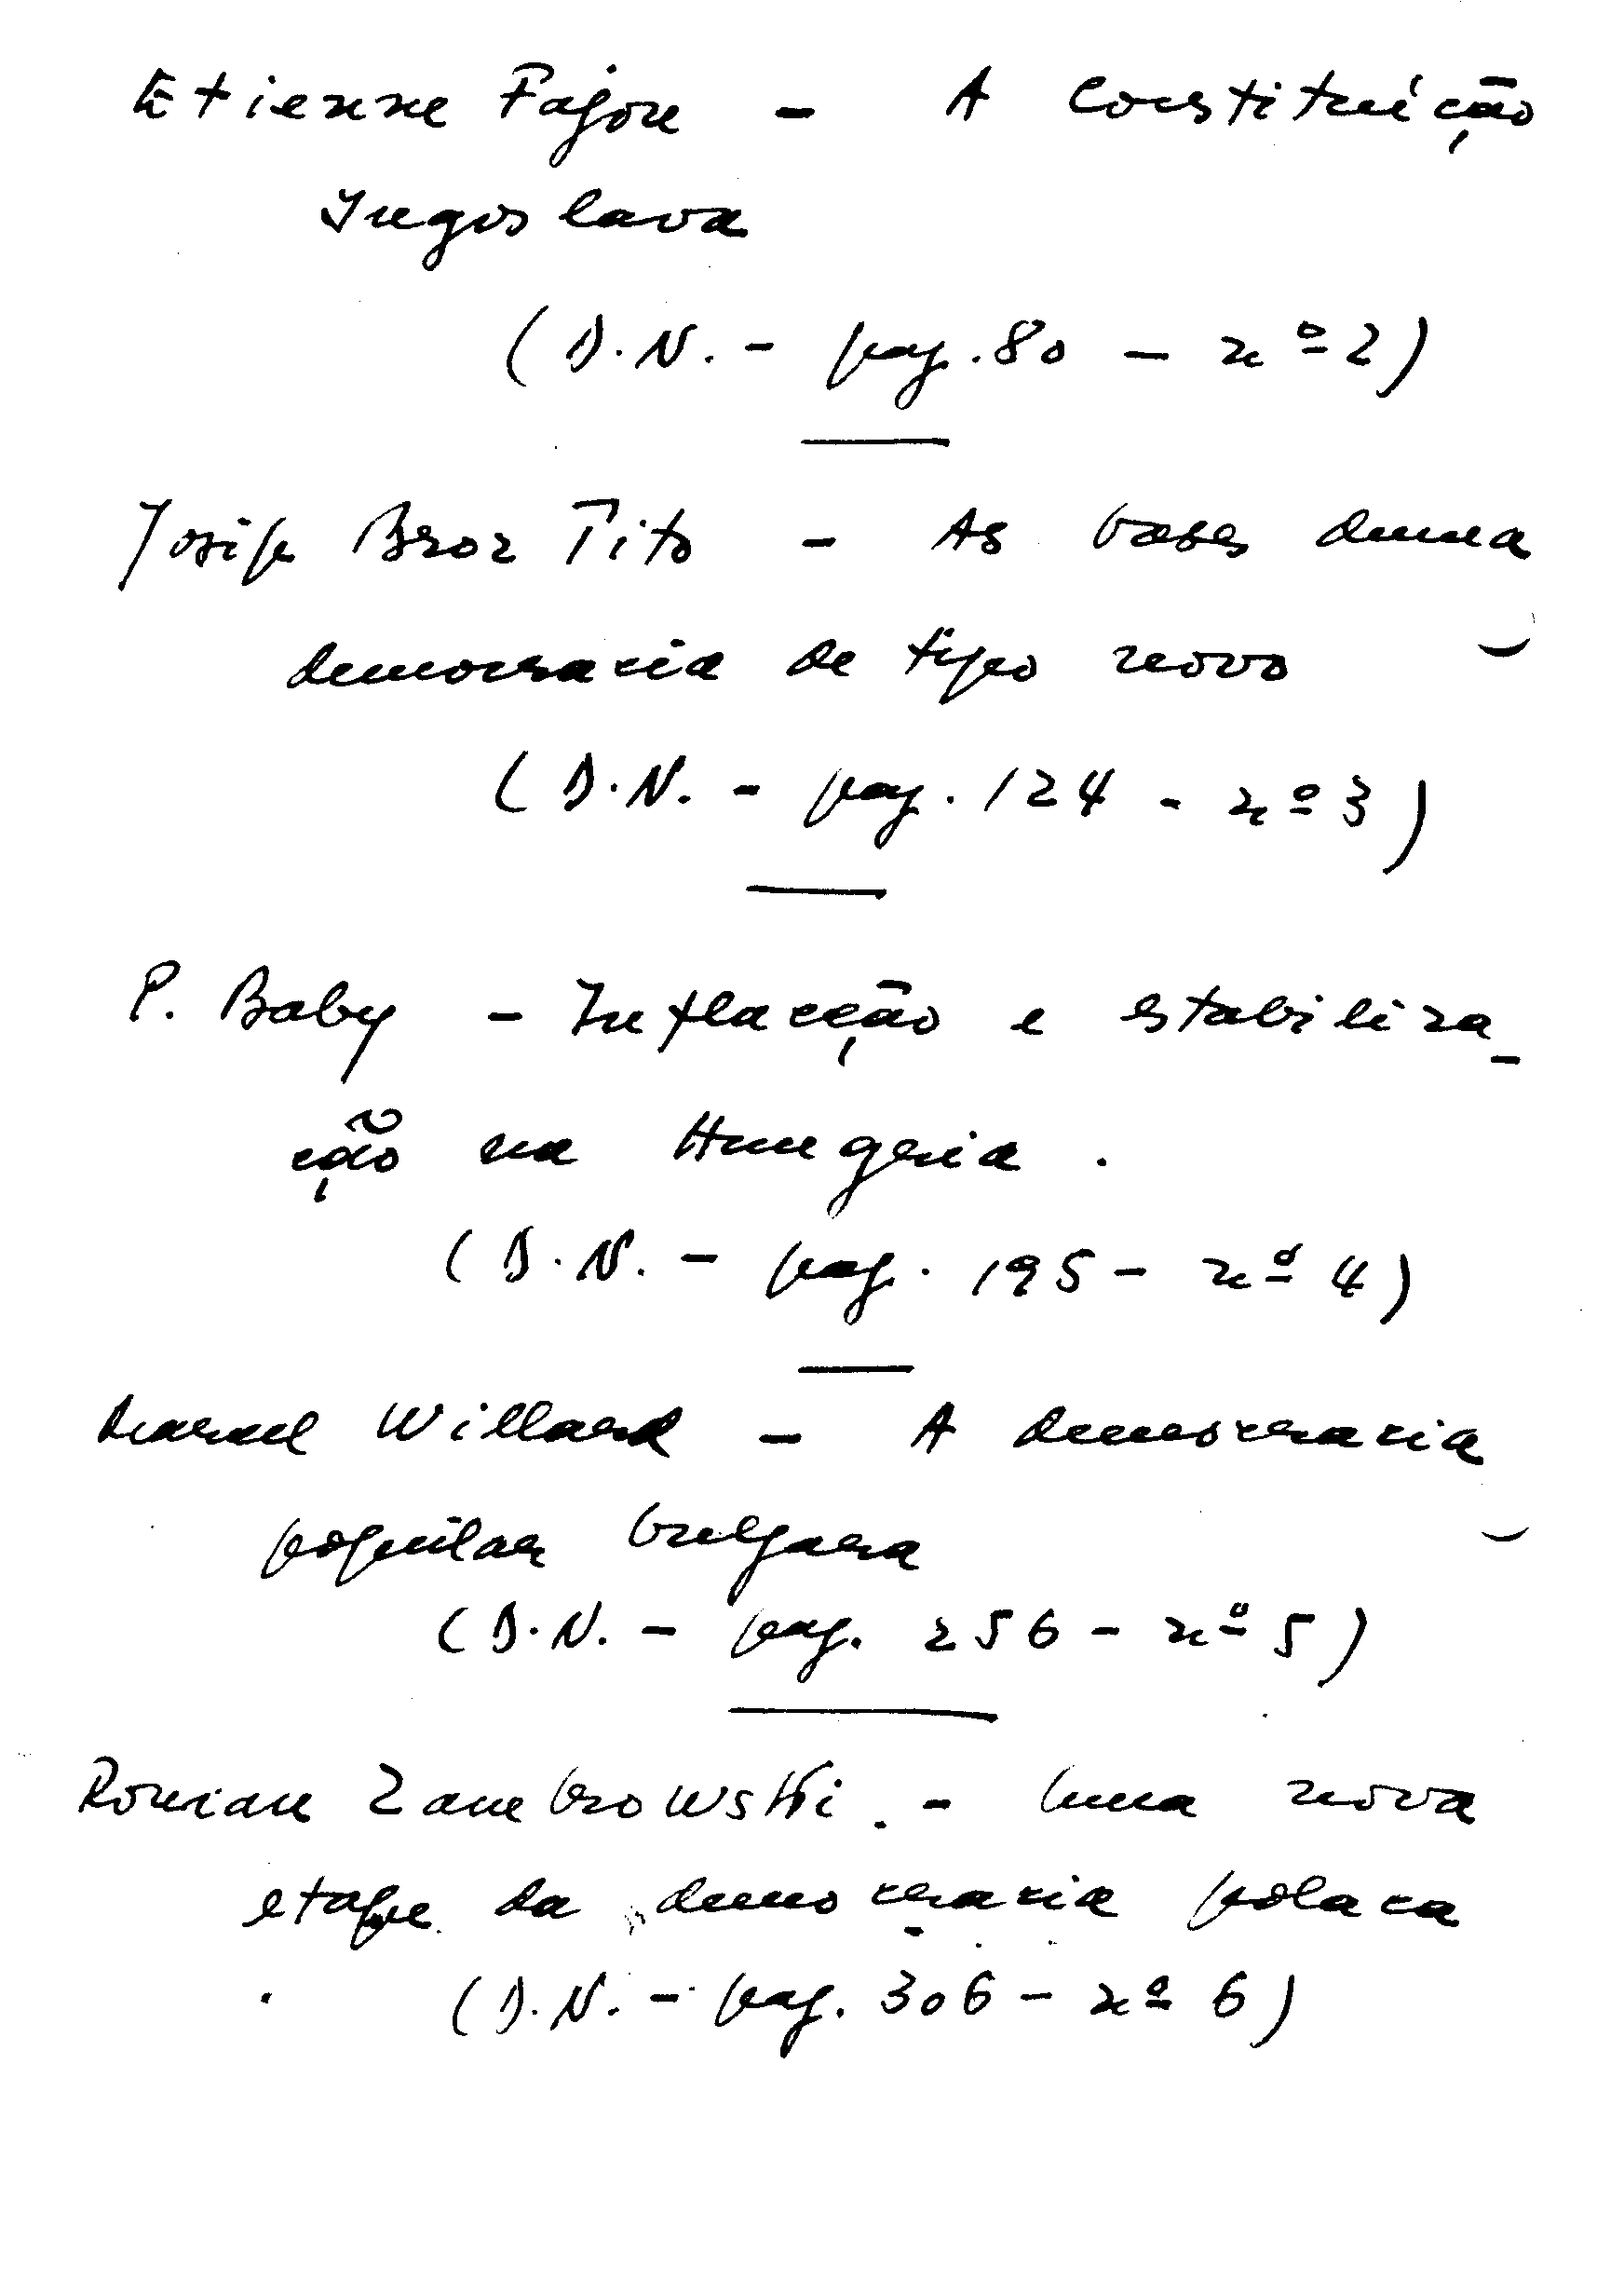 Etienne Fajon - A Constituição
Jugoslava
(D.N. - pag. 80 - nº 2)
Josip Broz Tito - As bases duma
democracia de tipo novo
(D.N. - pag. 124 - nº 3)
P. Baby - Inflacção e estabiliza-
ção na Hungria.
(D.N. - pag. 195 - nº 4)
Marcel Willard - A democracia
popular bulgara
(D.N. - pag. 256 - nº 5)
Roman Zambrowski. - Uma nova
etape da democracia polaca
(D.N. - pag. 306 - nº 6)